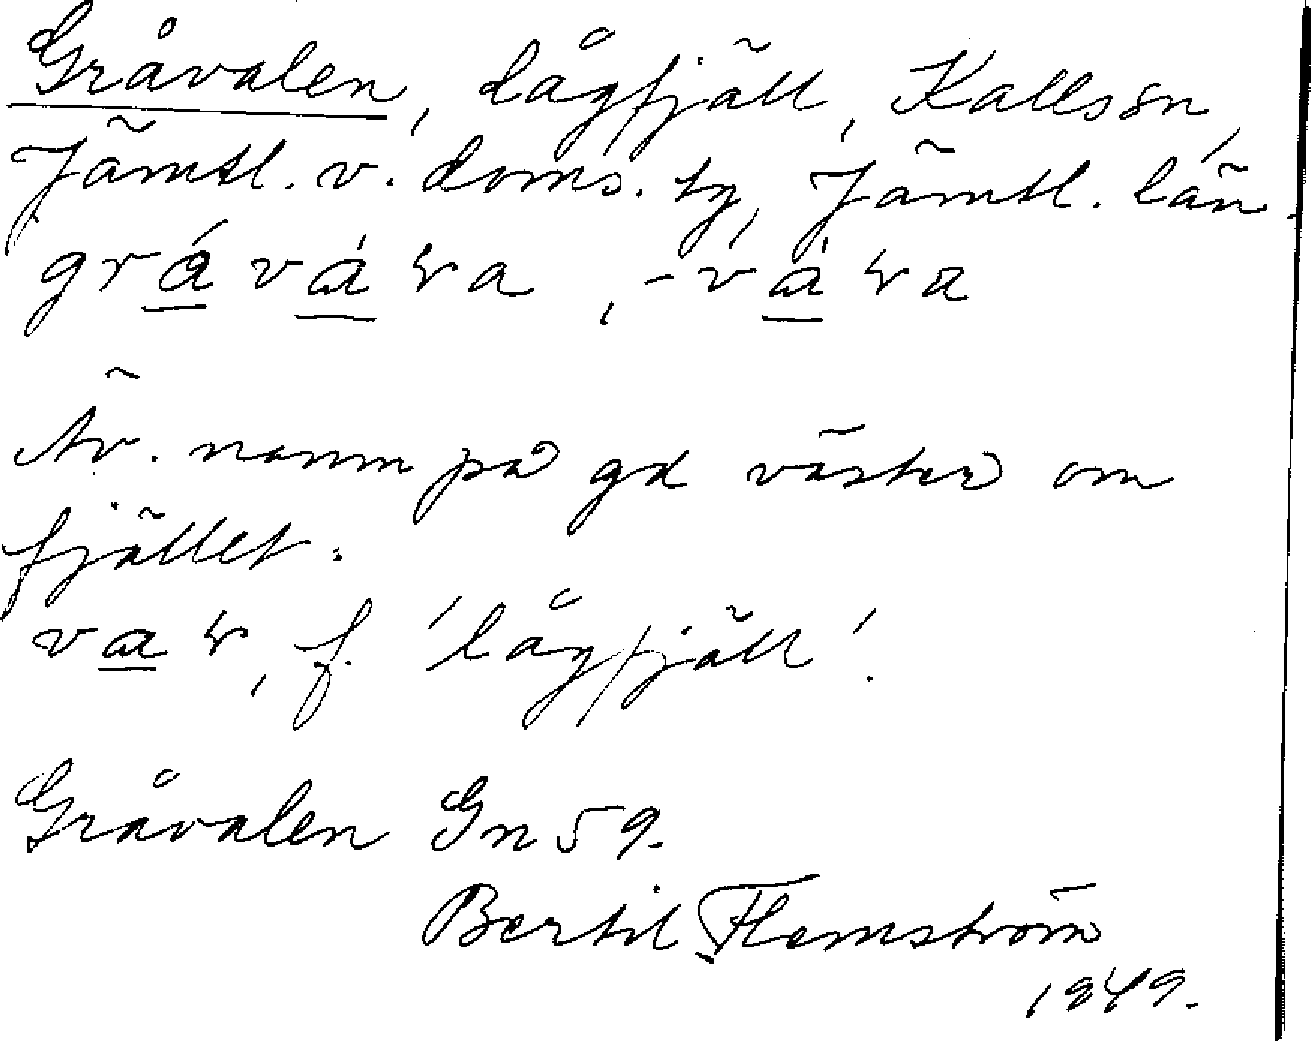 Gråvalen, lågfjäll, Kalls sn,
Jämtl. v. doms. tg, Jämtl. län.
Äv. namn på gd väster om
fjället.
f. 'lågfjäll'.
Gråvalen Gn 59.
Bertil Flemström
1949.